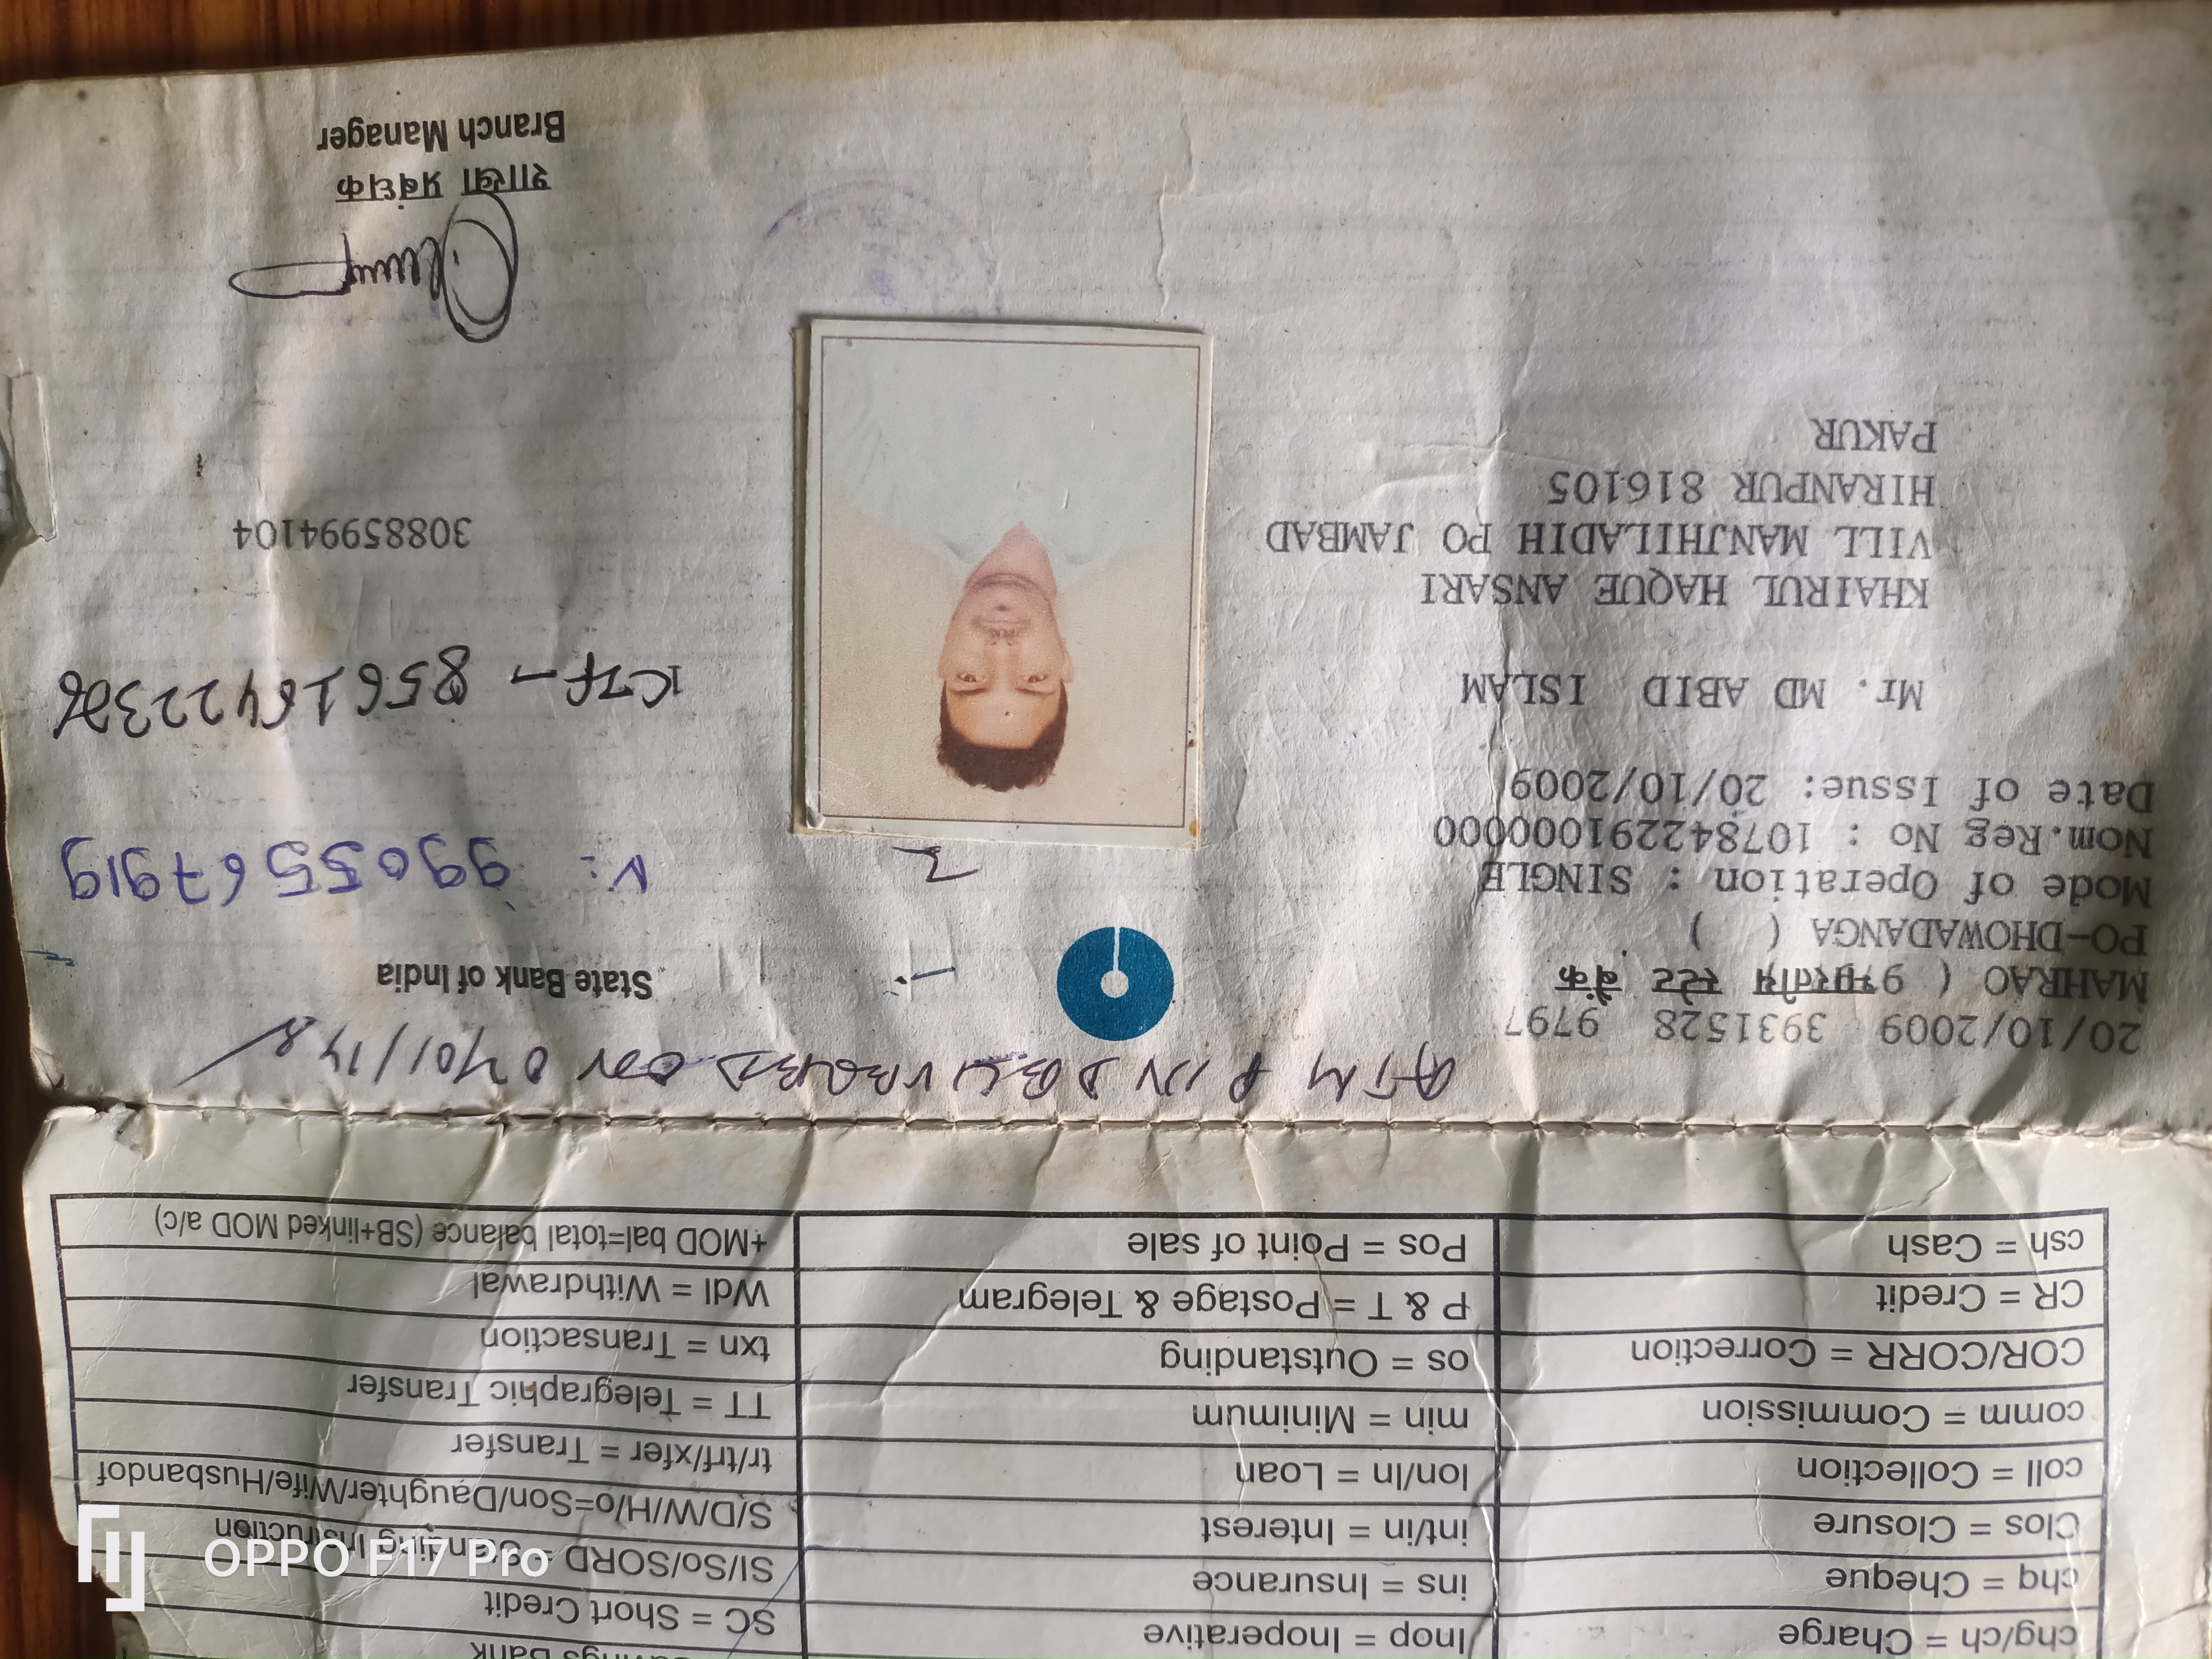 SC = Short Credit
SI/So/SORD = Standing Instruction
S/D/W/H/o=Son/Daughter/Wife/Husbandof
tr/trf/xfer = Transfer
TT = Telegraphic Transfer
txn = Transaction
Wdl = Withdrawal
+MOD bal=total balance (SB+linked MOD a/c)
Inop = Inoperative
ins = Insurance
int/in = Interest
lon/ln = Loan
min = Minimum
os = Outstanding
P & T = Postage & Telegram
Pos = Point of sale
chg/ch = Charge
chq = Cheque
Clos = Closure
coll = Collection
comm = Commission
COR/CORR = Correction
CR = Credit
csh = Cash
ATM PIN DELIVERED ON
20/10/2009 3931528 9797
MAHRAO ( 9 भारतीय स्टेट बैंक
State Bank of India
PO-DHOWADANGA ( )
Mode of Operation : SINGLE
Nom.Reg No : 1078422910000000
Date of Issue: 20/10/2009
9905567919
Mr. MD ABID ISLAM
KHAIRUL HAQUE ANSARI
VILL MANJHILADIH PO JAMBAD
HIRANPUR 816105
PAKUR
30885994104
शाखा प्रबंधक
Branch Manager
OPPO F17 Pro